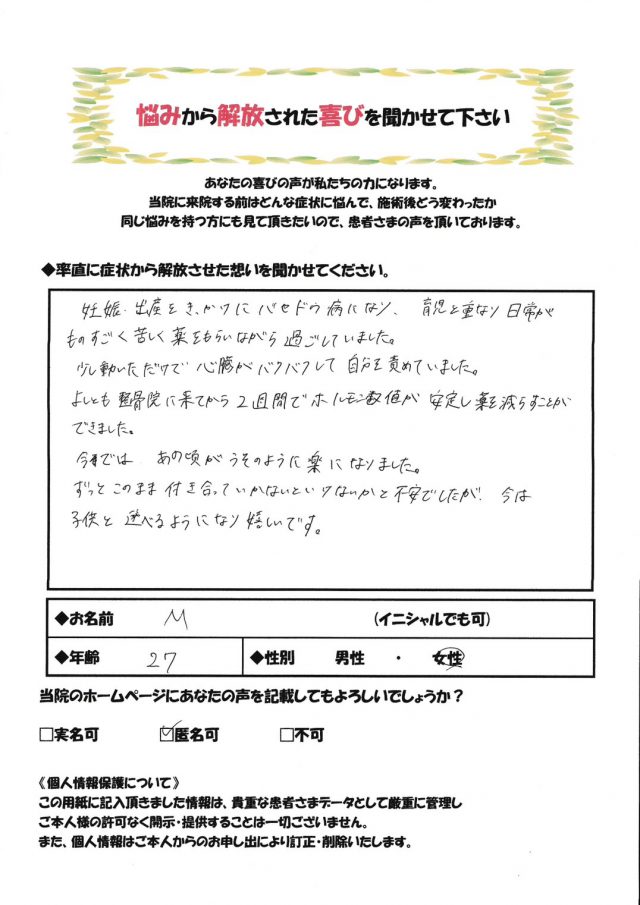 悩みから解放された喜びを聞かせて下さい
あなたの喜びの声が私たちの力になります。
当院に来院する前はどんな症状に悩んで、施術後どう変わったか
同じ悩みを持つ方にも見て頂きたいので、患者さまの声を頂いております。
◆率直に症状から解放させた想いを聞かせてください。
妊娠・出産をきっかけにバセドウ病になり、育児と重なり日常が
ものすごく苦しく薬をもらいながら過ごしていました。
少し動いただけで心臓がバクバクして自分を責めていました。
よしとも整骨院に来てから2週間でホルモン数値が安定し薬を減らすことが
できました。
今までは あの頃がうそのように楽になりました。
ずっとこのまま付き合っていかないといけないかと不安でしたが、今は
子供と遊べるようになり嬉しいです。
◆お名前 M (イニシャルでも可)
◆年齢 27 ◆性別 男性 ・ 女性
当院のホームページにあなたの声を記載してもよろしいでしょうか？
□実名可 ☑匿名可 □不可
《個人情報保護について》
この用紙に記入頂きました情報は、貴重な患者さまデータとして厳重に管理し
ご本人様の許可なく開示・提供することは一切ございません。
また、個人情報はご本人からのお申し出により訂正・削除いたします。